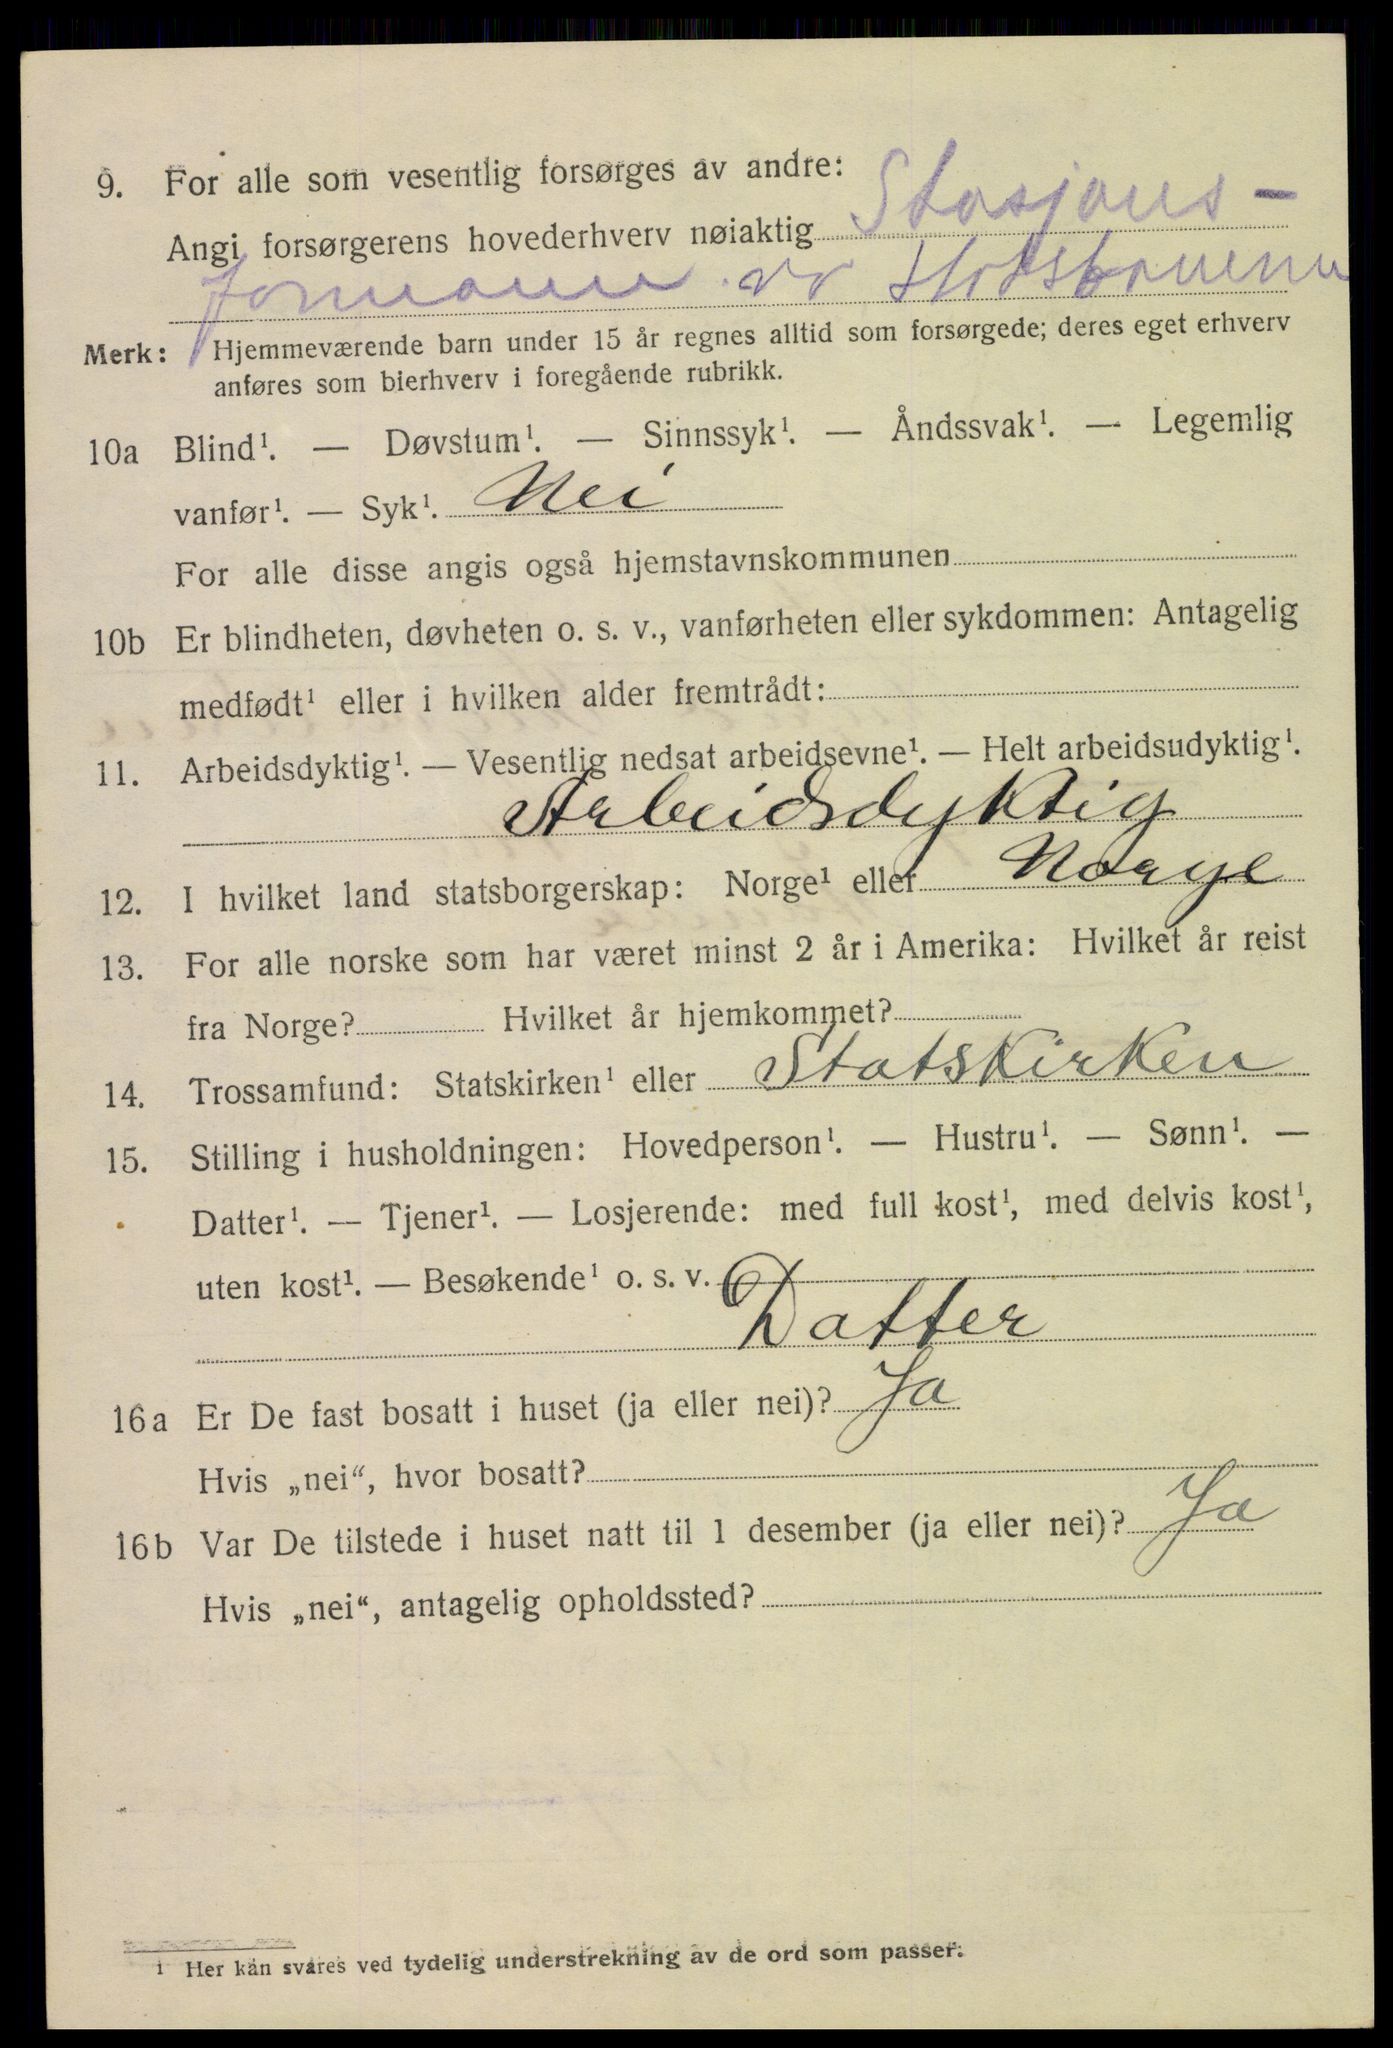 9. For alle som vesentlig forsørges av andre:
Angi forsørgerens hovederhverv nøiaktig Stasjons-
formann v. Statsbanene
Merk: Hjemmeværende barn under 15 år regnes alltid som forsørgede; deres eget erhverv
anføres som bierhverv i foregående rubrikk.
10a Blind¹. — Døvstum¹. — Sinnssyk¹. — Åndssvak¹. — Legemlig
vanfør¹. — Syk¹. Nei
For alle disse angis også hjemstavnskommunen
10b Er blindheten, døvheten o. s. v., vanførheten eller sykdommen: Antagelig
medfødt¹ eller i hvilken alder fremtrådt:
11. Arbeidsdyktig¹. — Vesentlig nedsat arbeidsevne¹. — Helt arbeidsudyktig¹.
Arbeidsdyktig
12. I hvilket land statsborgerskap: Norge¹ eller Norge
13. For alle norske som har været minst 2 år i Amerika: Hvilket år reist
fra Norge? Hvilket år hjemkommet?
14. Trossamfund: Statskirken¹ eller Statskirken
15. Stilling i husholdningen: Hovedperson¹. — Hustru¹. — Sønn¹. —
Datter¹. — Tjener¹. — Losjerende: med full kost¹, med delvis kost¹,
uten kost¹. — Besøkende¹ o. s. v.
Datter
16a Er De fast bosatt i huset (ja eller nei)? Ja
Hvis „nei“, hvor bosatt?
16b Var De tilstede i huset natt til 1 desember (ja eller nei)? Ja
Hvis „nei“, antagelig opholdssted?
1 Her kan svares ved tydelig understrekning av de ord som passer.